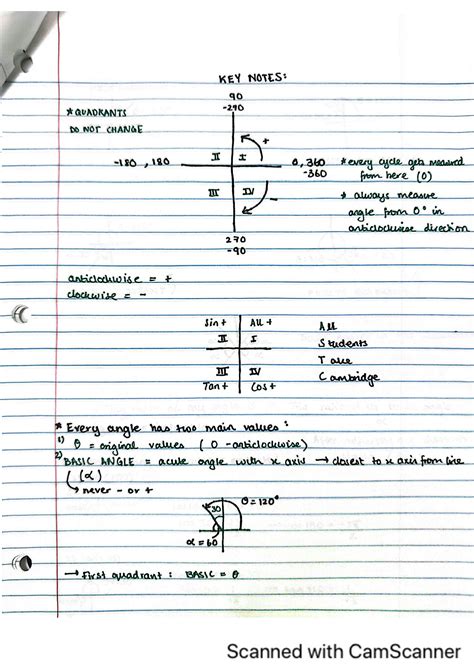 KEY NOTES:
90
-270
* QUADRANTS
DO NOT CHANGE
+
II I
-180, 180
0, 360
-360
* every cycle gets measured
from here (0)
III IV
-
* always measure
angle from 0° in
anticlockwise direction
270
-90
anticlockwise = +
clockwise = -
Sin + All +
II I
III IV
Tan + Cos +
All
Students
Take
Cambridge
* Every angle has two main values:
1) θ = original values (0 - anticlockwise)
2) BASIC ANGLE = acute angle with x axis → closest to x axis from line
(α)
→ never - or +
θ = 120°
30
α = 60
→ First quadrant: BASIC = θ
Scanned with CamScanner